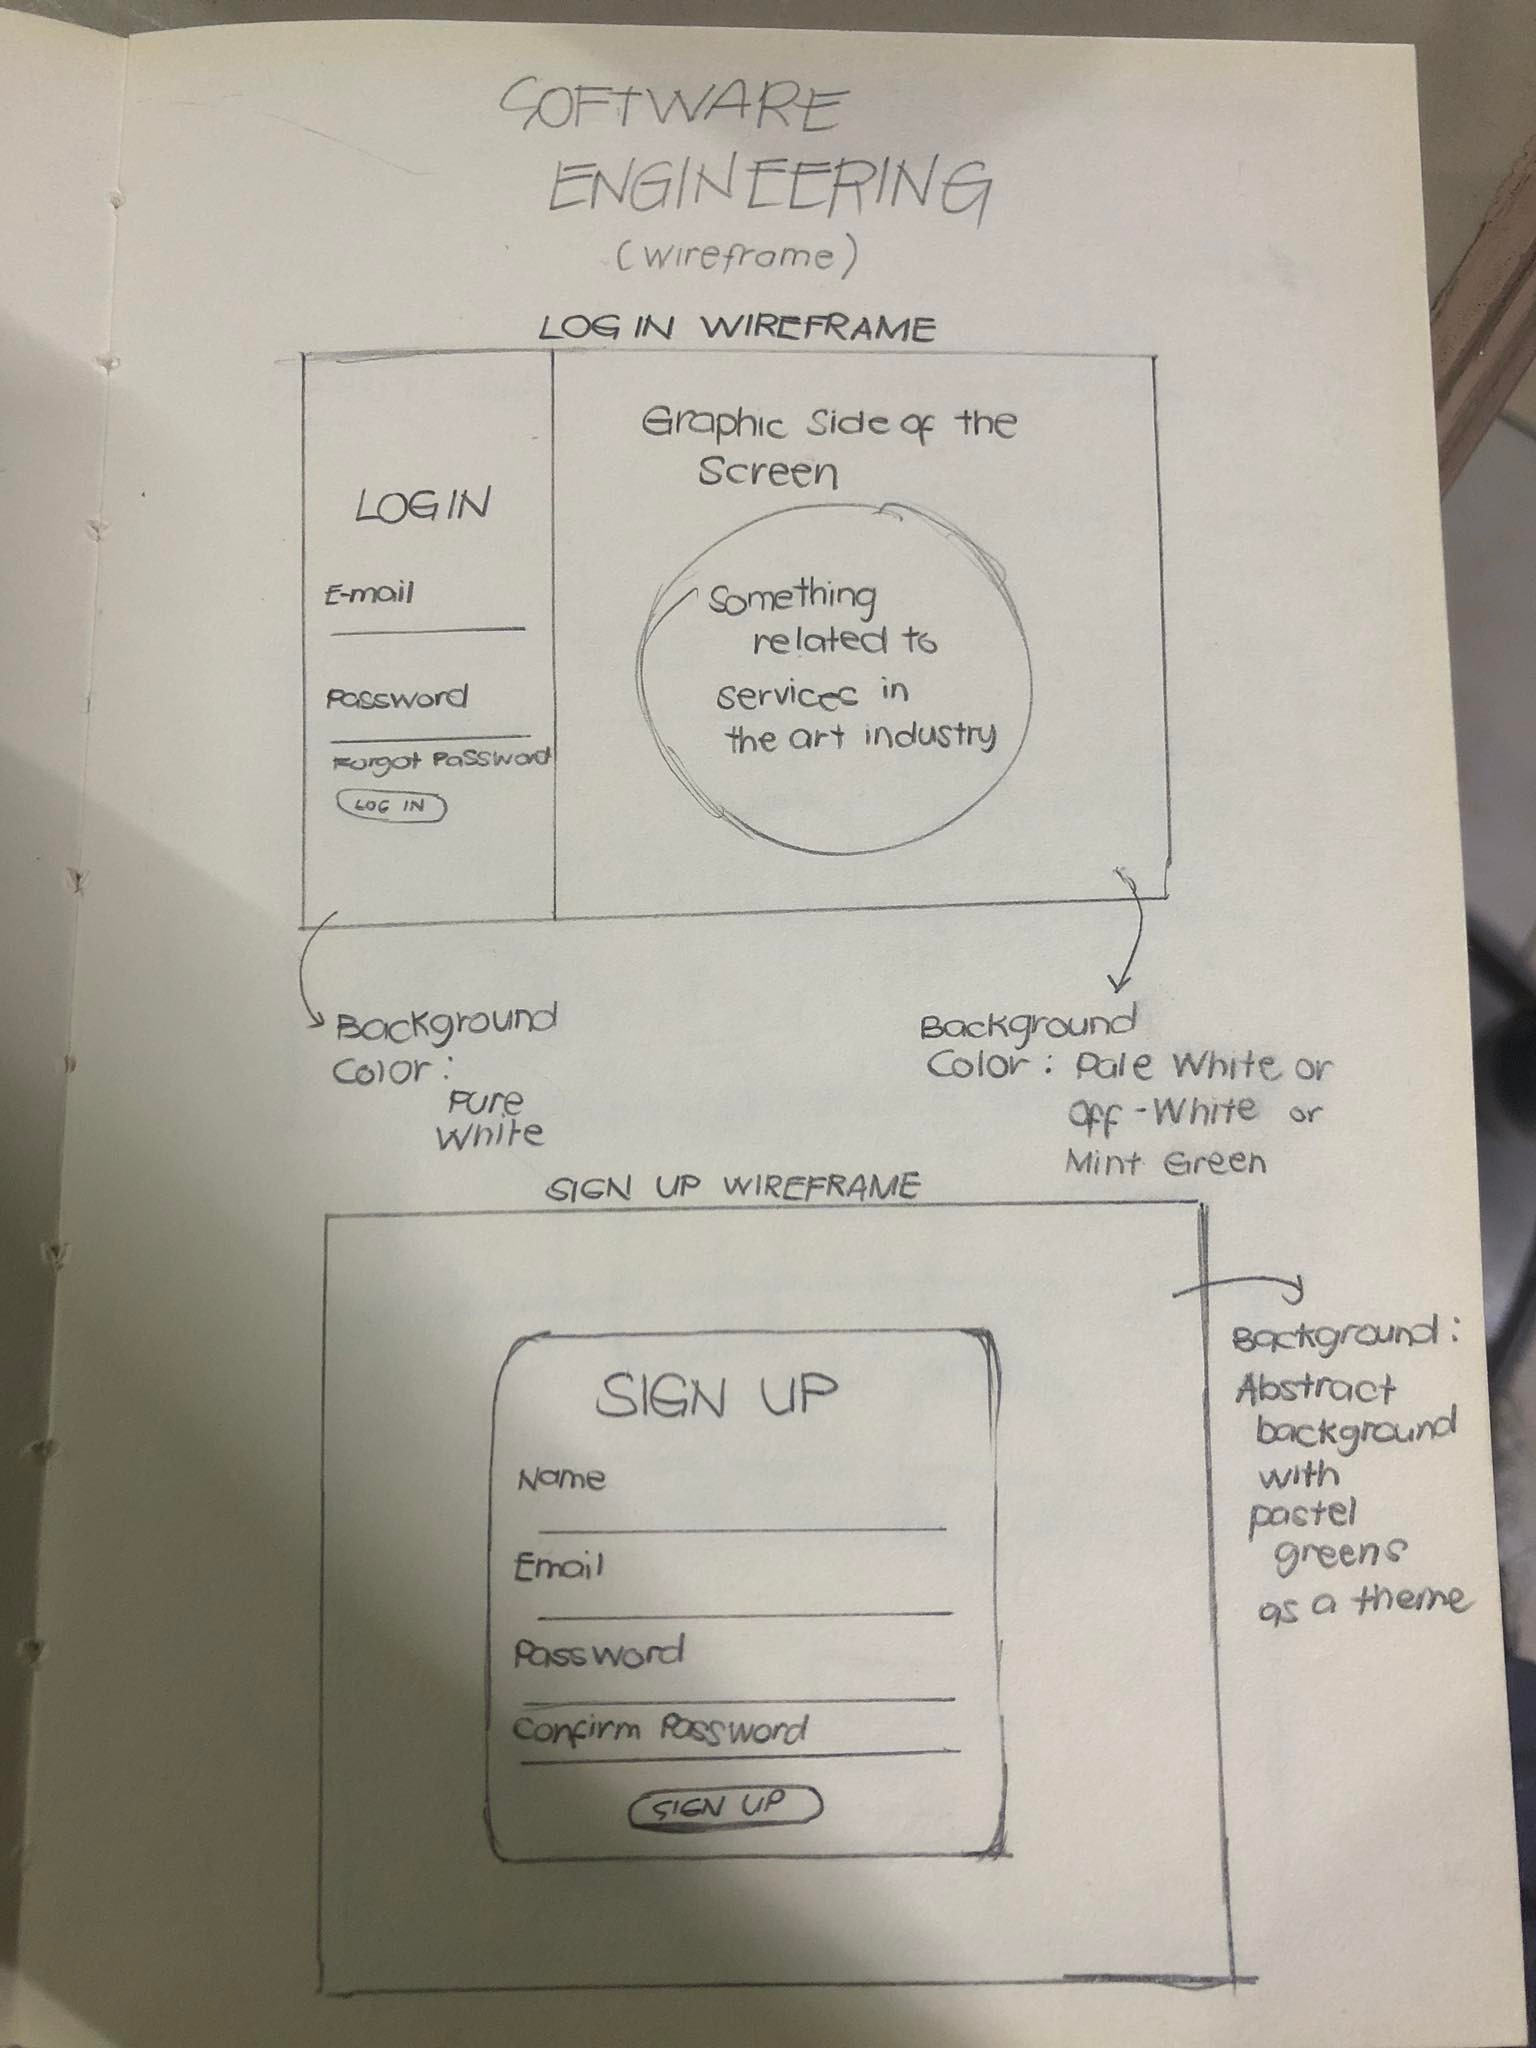 SOFTWARE
ENGINEERING
(wireframe)
LOG IN WIREFRAME
LOGIN
E-mail
Password
Forgot Password
LOG IN
Graphic Side of the
Screen
Something
related to
services in
the art industry
Background
Color:
Pure
White
Background
Color: Pale White or
Off-White or
Mint Green
SIGN UP WIREFRAME
SIGN UP
Name
Email
Password
Confirm Password
SIGN UP
Background:
Abstract
background
with
pastel
greens
as a theme